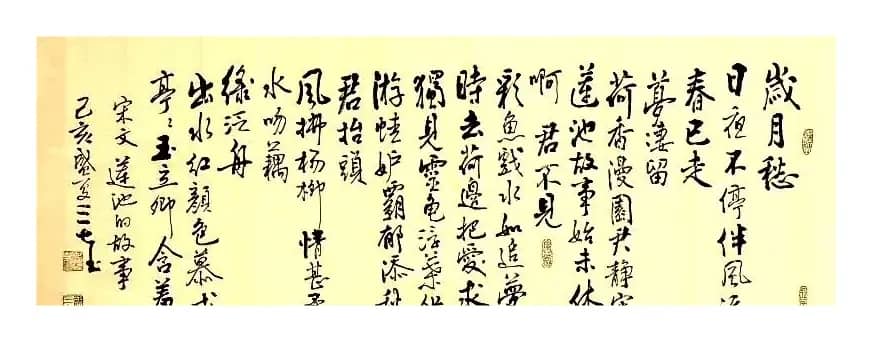 歲月愁
日夜不停伴風
春已走
夢淒留
荷香漫園共靜
蓮池故事始未休
啊 君不見
彩魚戲水如追夢
時去荷邊把愛求
獨見靈龜浮葉
游蛙妒霸郁添
君抬頭
風拂楊柳情甚
水吻藕
泛舟
出水紅顏色慕
亭:玉立卿含羞
宋文 蓮池的故事
己亥盛夏